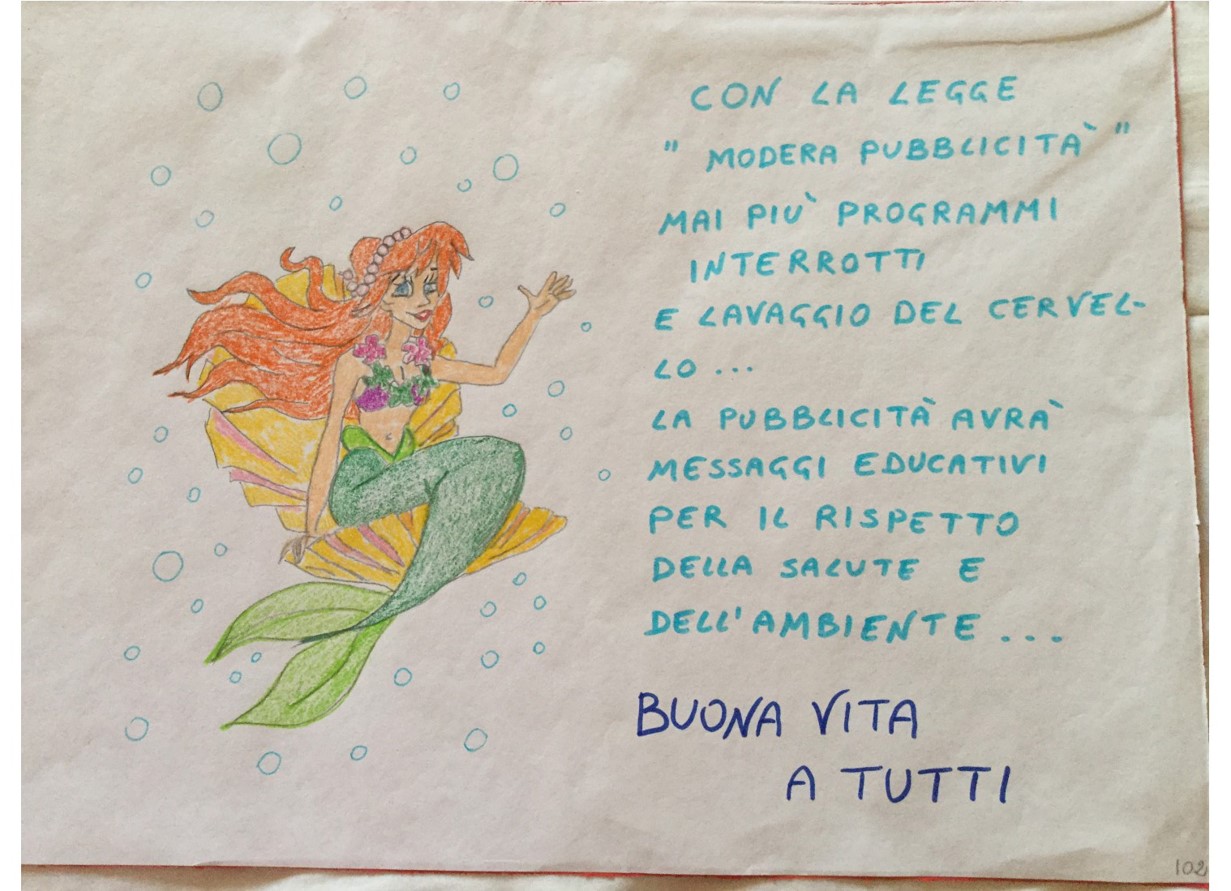 CON LA LEGGE
" MODERA PUBBLICITÀ "
MAI PIÙ PROGRAMMI
INTERROTTI
E LAVAGGIO DEL CERVEL-
LO ...
LA PUBBLICITÀ AVRÀ
MESSAGGI EDUCATIVI
PER IL RISPETTO
DELLA SALUTE E
DELL'AMBIENTE ...
BUONA VITA
A TUTTI
102